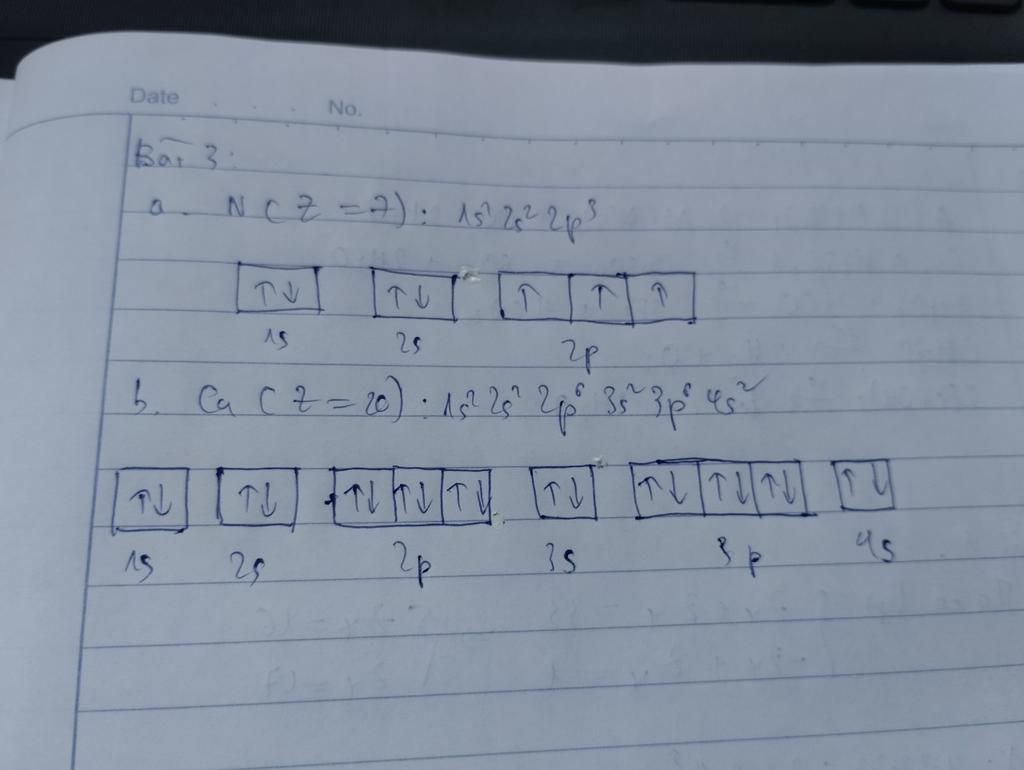 Date . . . No.
Bài 3:
a. N (Z = 7): 1s² 2s² 2p³
↑↓ ↑↓ ↑ ↑ ↑
1s 2s 2p
b. Ca (Z = 20): 1s² 2s² 2p⁶ 3s² 3p⁶ 4s²
↑↓ ↑↓ ↑↓ ↑↓ ↑↓ ↑↓ ↑↓ ↑↓ ↑↓ ↑↓
1s 2s 2p 3s 3p 4s